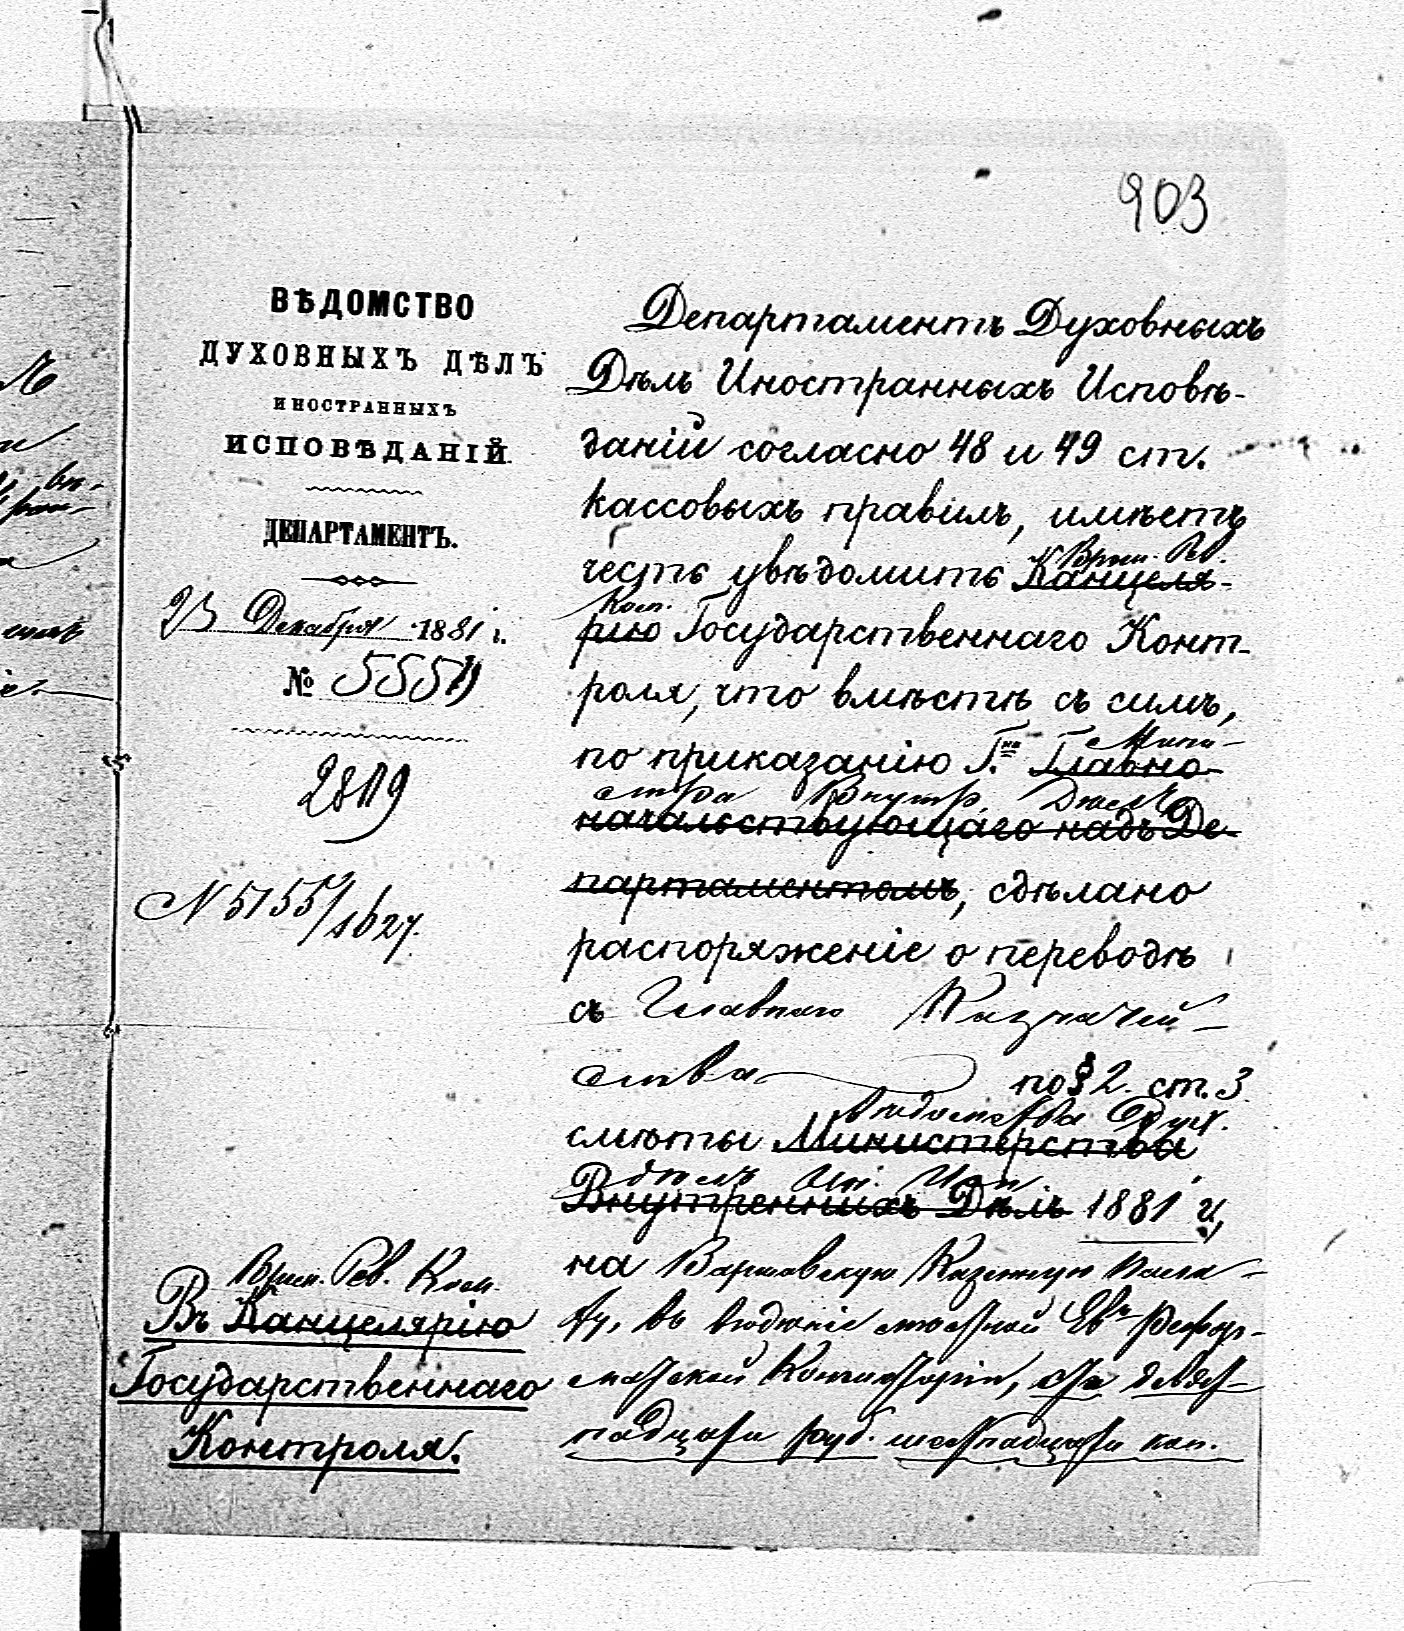 903
ВѢДОМСТВО
ДУХОВНЫХЪ ДѢЛЪ
ИНОСТРАННЫХЪ
ИСПОВѢДАНІЙ.
ДЕПАРТАМЕНТЪ.
23 Декабря 1881 г.
№
2819
N 5155/1627.
Врем. Рев. Ком.
Въ Канцелярію
Государственнаго
Контроля.
Департаментъ Духовныхъ
Дѣлъ Иностранныхъ Исповѣ-
даній согласно 48 и 49 ст.
кассовыхъ правилъ, имѣетъ
Врем. Рев.
честь увѣдомить Канцеля-
Ком.
рію Государственнаго Конт-
роля, что вмѣстѣ съ симъ,
Мини-
по приказанію Г.на Главно-
стра Внутр. Дѣлъ
начальствующаго надъ Де-
партаментомъ, сдѣлано
распоряженіе о переводѣ
съ Главнаго Казначей-
ства по § 2. ст. 3
вѣдомства Дух.
смѣты Министерства
дѣлъ Ин. Исп.
Внутреннихъ Дѣлъ 1881 г.,
на Варшавскую Казенную Пала-
ту, въ вѣдѣніе мѣстной Ев. Рефор-
матской Консисторіи, ста девят-
надцати руб. шестнадцати коп.